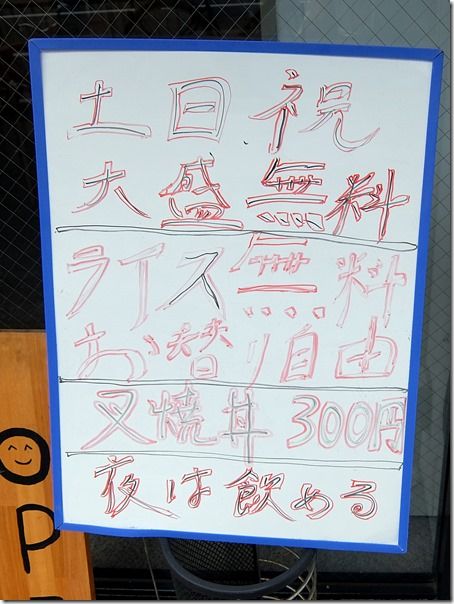 土日祝
大盛無料
ライス無料
お替り自由
叉焼丼 300円
夜は飲める
OP